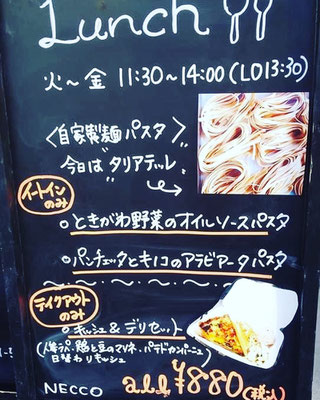 Lunch
火〜金 11:30〜14:00(LO13:30)
〈自家製麺パスタ〉
今日は タリアテッレ
イートイン
のみ
○ときがわ野菜のオイルソースパスタ
○パンチェッタとキノコのアラビアータパスタ
テイクアウト
のみ
○キッシュ&デリセット
(人参ラペ、鶏と豆のマリネ、パテドカンパーニュ)
日替わりキッシュ
NECCO all ¥880(税込)